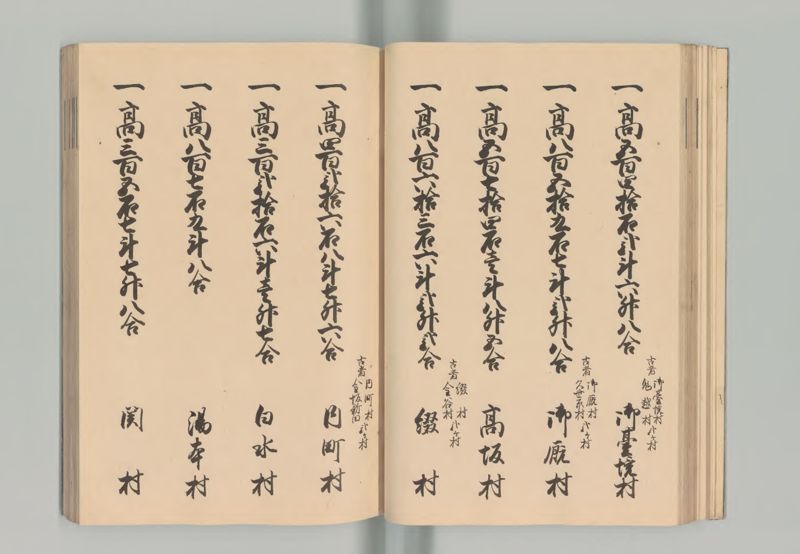 一高五百四拾石弐斗六升八合
古者御臺境村
鬼越村弐ケ村
御臺境村
一高八百五拾五石七斗弐升八合
古者御厩村
久世原村弐ケ村
御厩村
一高五百七拾四石壱斗八升五合
高坂村
一高八百六拾三石六斗弐升弐合
古者綴村
金谷村弐ケ村
綴村
一高四百弐拾六石八斗七升六合
古者内町村
金坂新田弐ケ村
内町村
一高三百弐拾石六斗壱升七合
白水村
一高八百七石五斗八合
湯本村
一高三百五石七斗七升八合
関村